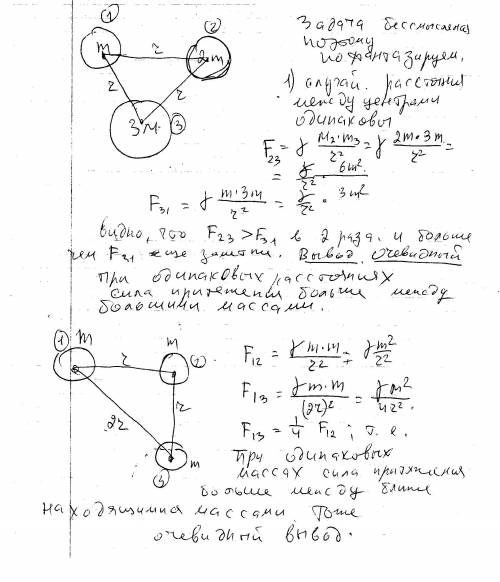 ①
②
m
r
2m
r
r
3м
③
Задача бессмысленна
поэтому
пофантазируем.
1) случай. расстояния
между центрами
одинаковы
F₂₃ = γ M₂·m₃/r² = γ 2m·3m/r² =
= γ/r² · 6m²
F₃₁ = γ m·3m/r² = γ/r² · 3m²
видно, что F₂₃ > F₃₁ в 2 раза. и больше
чем F₂₁ еще заметн. Вывод очевидный
При одинаковых расстояниях
сила притяжения больше между
большими массами.
① m
r
m
②
2r
r
③
m
F₁₂ = γm·m/r² = γm²/r²
F₁₃ = γm·m/(2r)² = γm²/4r².
F₁₃ = 1/4 F₁₂ ; т.е.
При одинаковых
массах сила притяжения
больше между ближе
находящимися массами. Тоже
очевидный вывод.